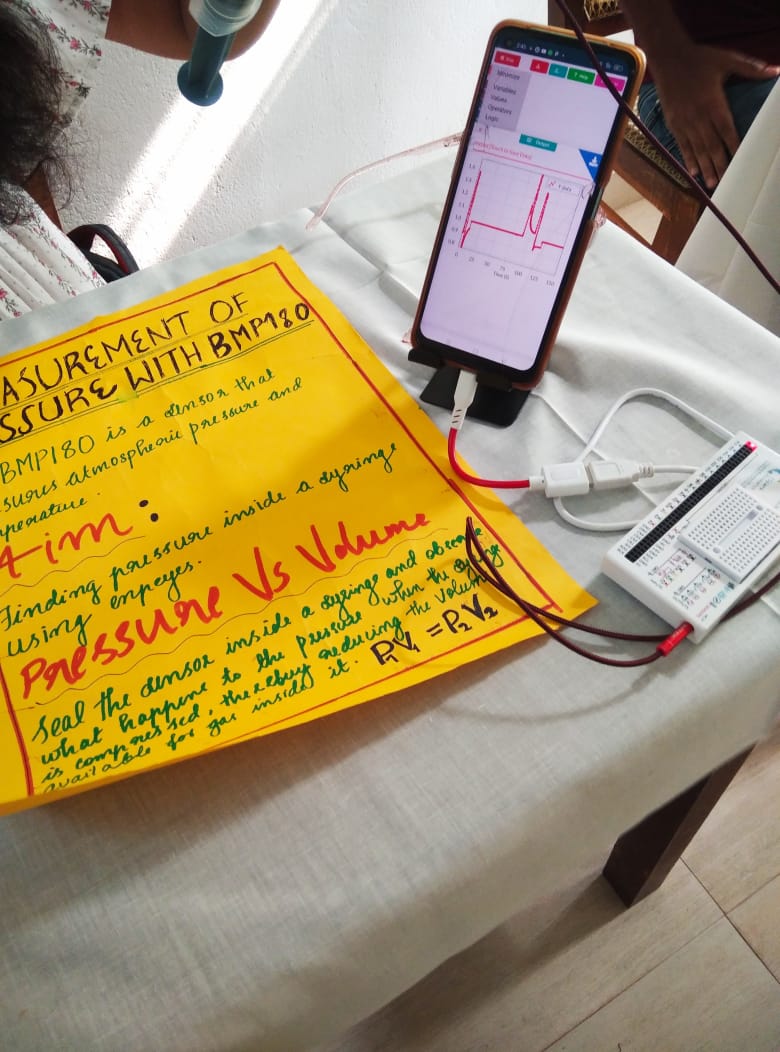 ASUREMENT OF
SSURE WITH BMP180
BMP180 is a sensor that
sures atmospheric pressure and
mperature.
Aim:
Finding pressure inside a syringe
using expeyes.
Pressure Vs Volume
Seal the sensor inside a syringe and observe
what happens to the pressure when the syringe
is compressed, thereby reducing the volume
available for gas inside it.
P₁V₁ = P₂V₂
Minimize
Variables
Values
Operators
Logic
Output
Time (S)
0 25 50 75 100 125 150